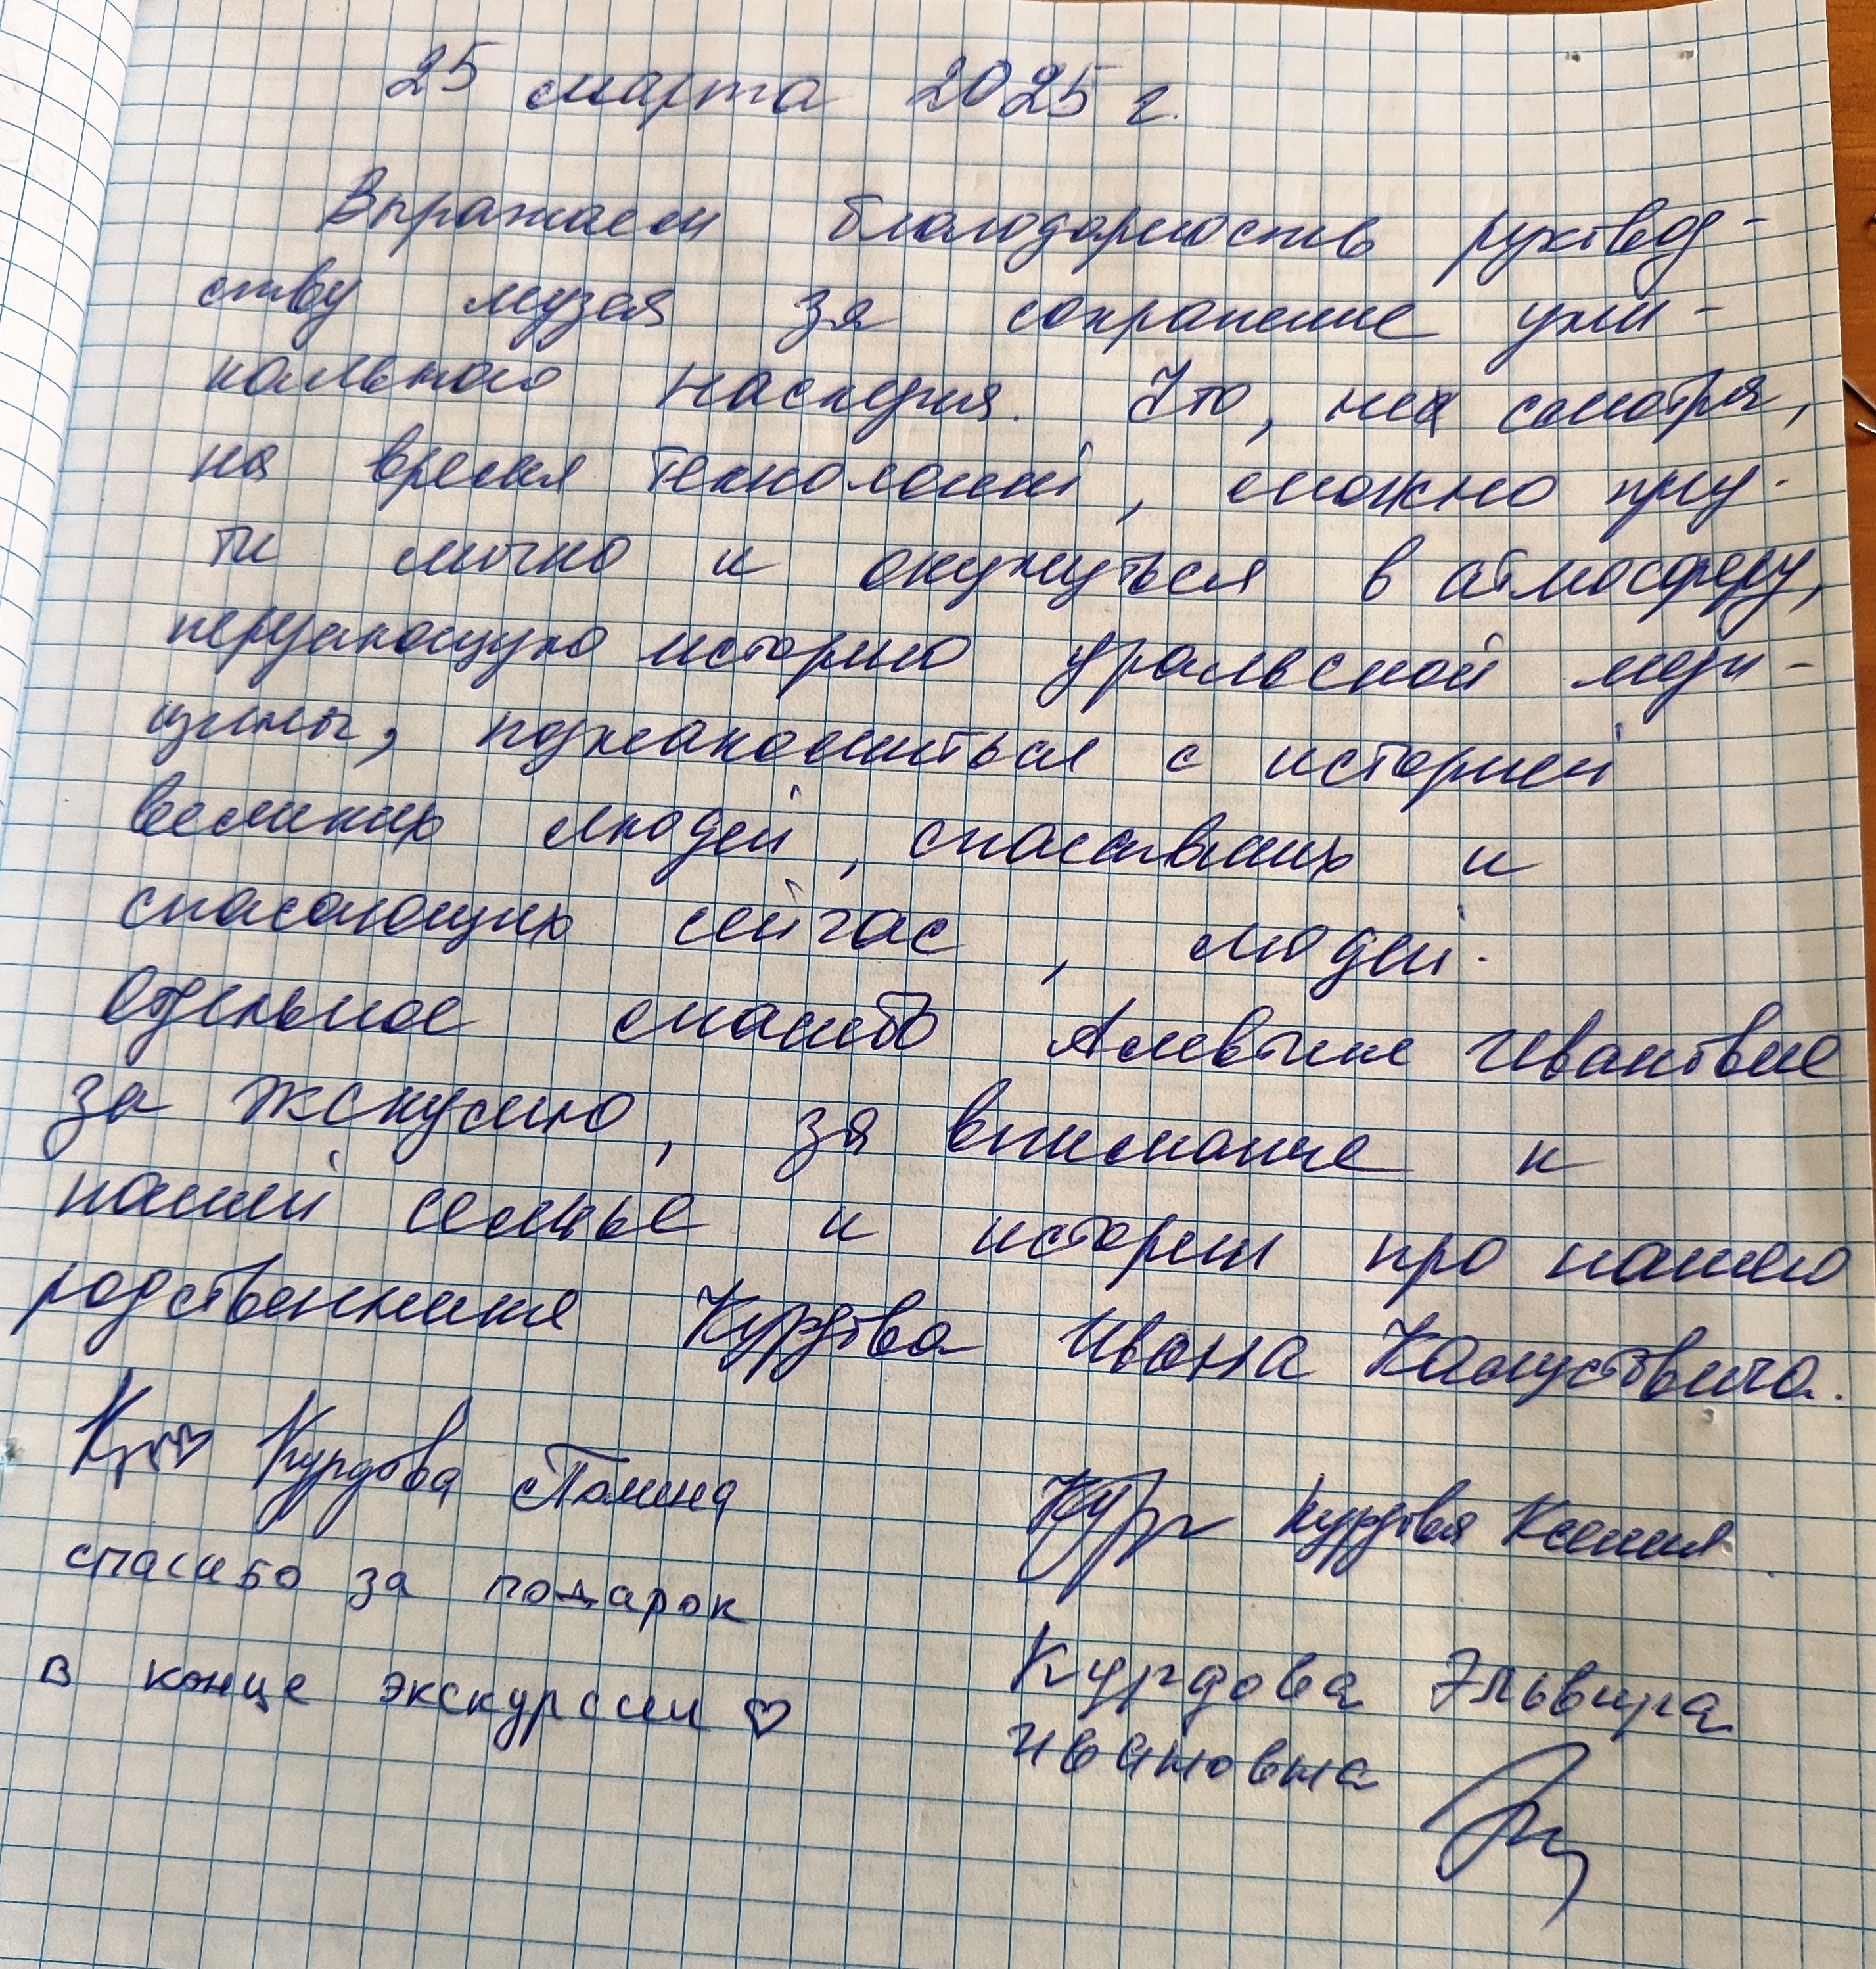 25 марта 2025 г.
Выражаем благодарность руковод-
ству музея за сохранение уни-
кального наследия. Что, не смотря,
на время технологий, можно прий-
ти лично и окунуться в атмосферу,
передающую историю уральской меди-
цины, познакомиться с историей
великих людей, спасавших и
спасающих сейчас, людей.
Отдельное спасибо Алевтине Ивановне
за экскурсию, за внимание к
нашей семье и истории про нашего
родственника Курдова Ивана Капустовича.
Курдова Полина
Курдова Ксения
спасибо за подарок
в конце экскурсии ♡
Курдова Эльвира
Ивановна